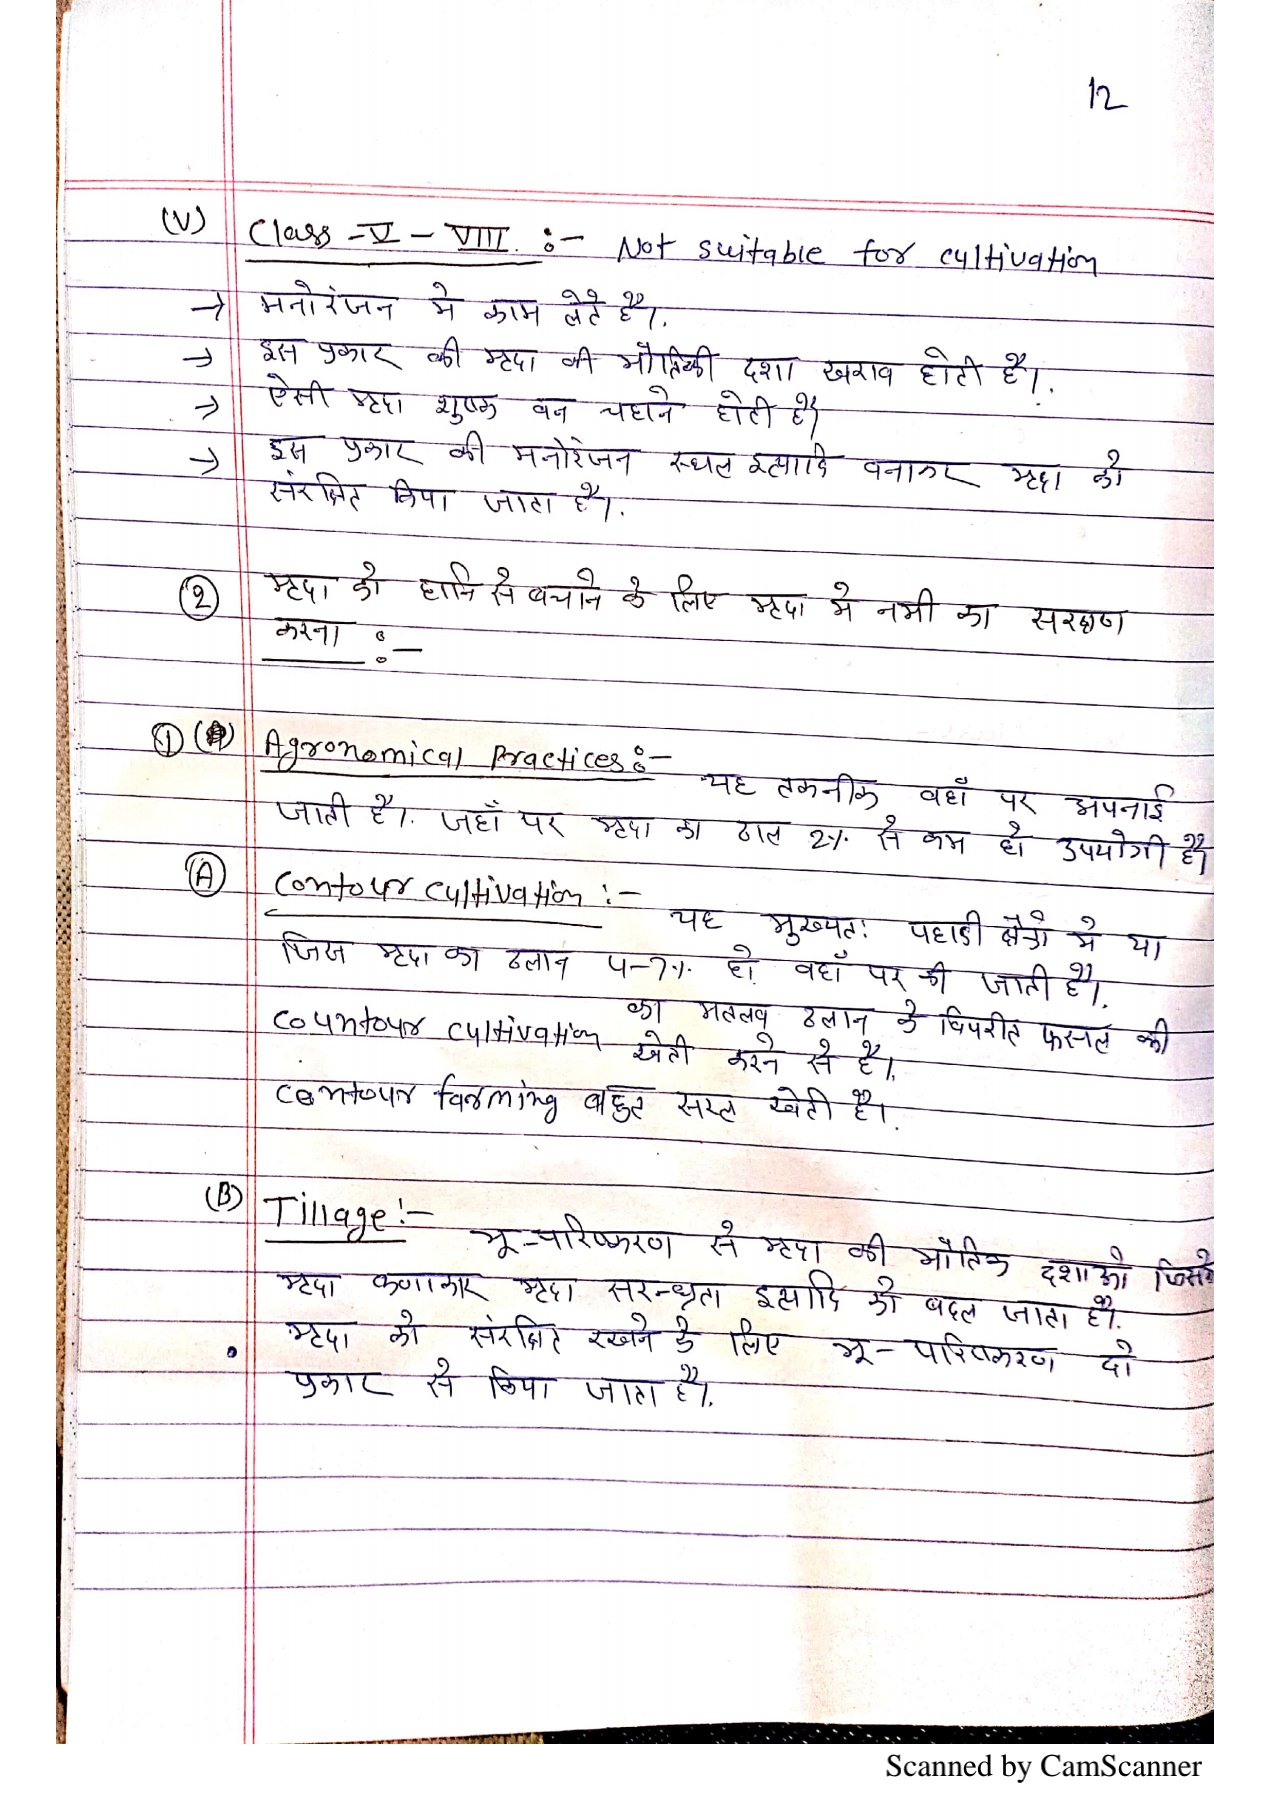 12
(V) Class -V - VIII :- Not suitable for cultivation
→ मनोरंजन मे काम लेते है।
→ इस प्रकार की मृदा की भौतिकी दशा खराब होती है।
→ ऐसी मृदा शुष्क वन चट्टाने होती है।
→ इस प्रकार की मनोरंजन स्थल इत्यादि बनाकर मृदा को
संरक्षित किया जाता है।
② मृदा को हानि से बचाने के लिए मृदा मे नमी का सरक्षण
करना :-
① Agronomical Practices :- यह तकनीक वहाँ पर अपनाई
जाती है। जहाँ पर मृदा का ढाल 2% से कम हो उपयोगी है।
Ⓐ Contour cultivation :- यह मुख्यत: पहाडी क्षैत्रो मे या
जिस मृदा का ढलान 4-7% हो वहाँ पर की जाती है।
Countour cultivation का मतलब ढलान के विपरीत फसल की
खेती करने से है।
Contour farming बहुत सरल खेती है।
(B) Tillage :- भू-परिष्करण से मृदा की भौतिक दशा को जिसमे
मृदा कणाकार मृदा सरन्ध्रता इत्यादि को बदल जाता है।
• मृदा को संरक्षित रखने के लिए भू-परिष्करण दो
प्रकार से किया जाता है।
Scanned by CamScanner